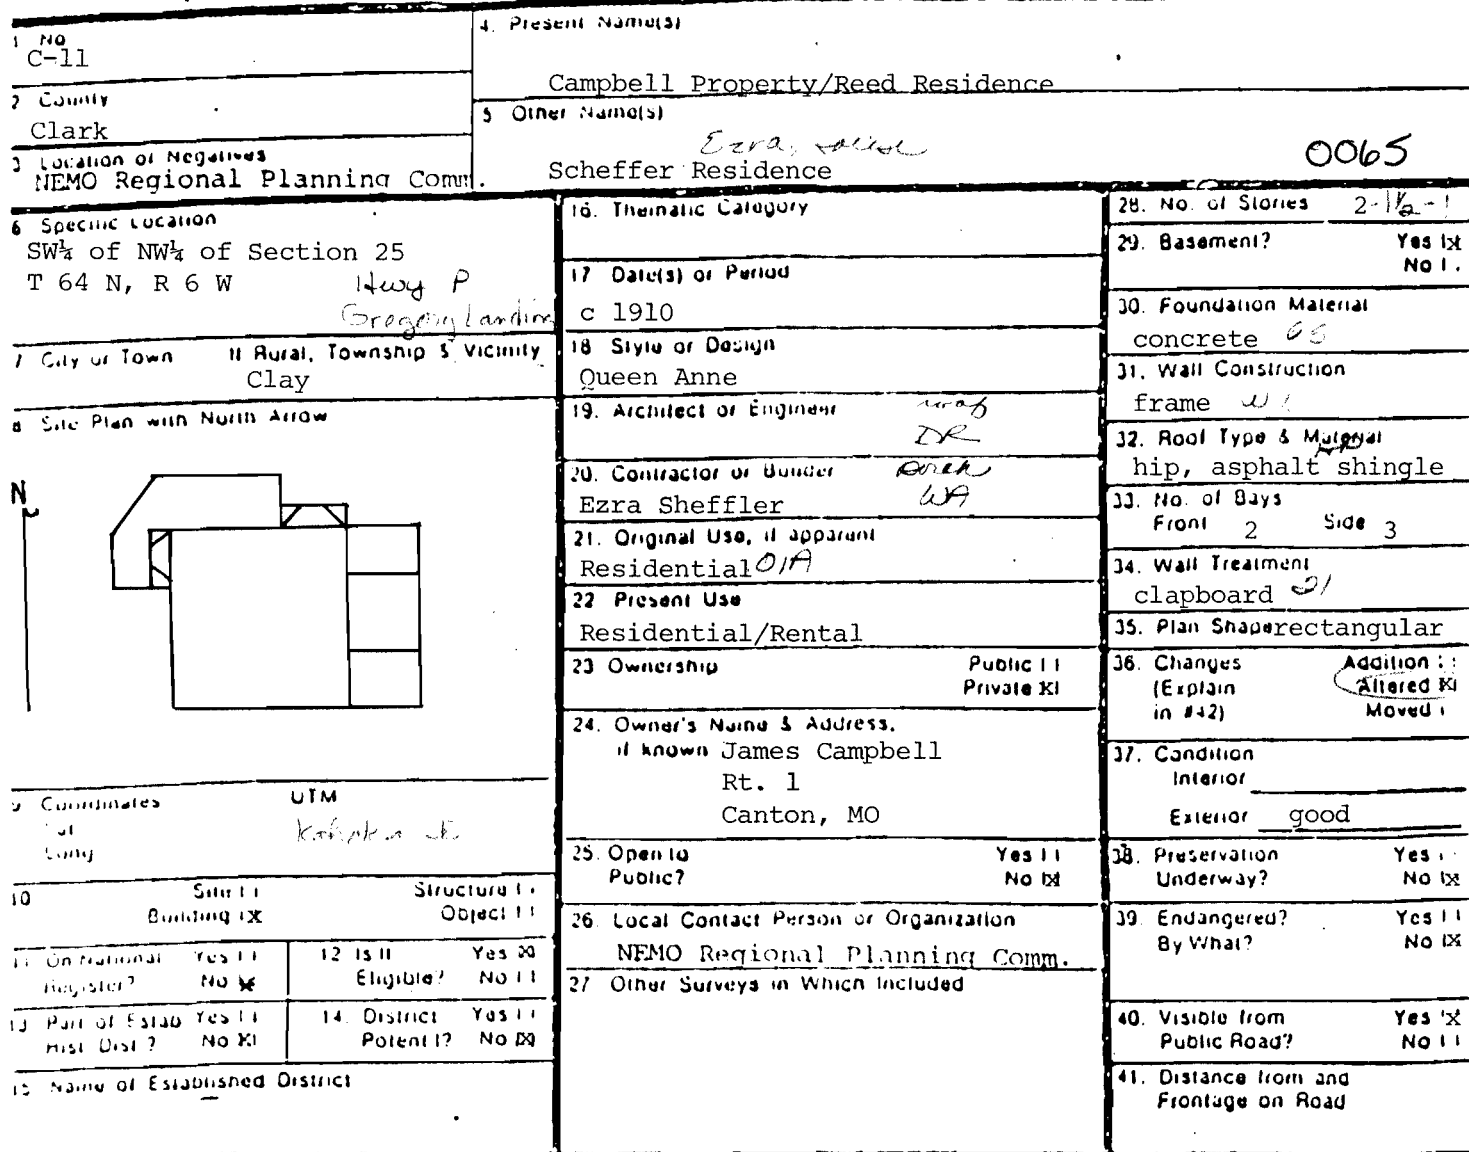 1 No
C-11
2 County
Clark
3 Location of Negatives
NEMO Regional Planning Comm.
4. Present Name(s)
Campbell Property/Reed Residence
5 Other Name(s)
Ezra, Louise
Scheffer Residence
0065
6 Specific Location
SW¼ of NW¼ of Section 25
T 64 N, R 6 W
Hwy P
Gregory Landing
7 City or Town If Rural, Township & Vicinity
Clay
8 Site Plan with North Arrow
N
9 Coordinates UTM
Lat
Long
Kahoka
10 Site ( ) Structure ( )
Building (X Object ( )
11 On National Register? Yes ( ) No X
12 Is It Eligible? Yes X) No ( )
13 Part of Estab Hist. Dist.? Yes ( ) No X)
14. District Potent'l? Yes ( ) No (X)
15 Name of Established District
16. Thematic Category
17 Date(s) or Period
c 1910
18 Style or Design
Queen Anne
19. Architect or Engineer
roof
DR
20. Contractor or Builder
Ezra Sheffler
porch
WA
21. Original Use, if apparent
Residential 01A
22 Present Use
Residential/Rental
23 Ownership Public ( )
Private X)
24. Owner's Name & Address,
if known James Campbell
Rt. 1
Canton, MO
25. Open to Yes ( )
Public? No (X
26. Local Contact Person or Organization
NEMO Regional Planning Comm.
27 Other Surveys in Which Included
28. No. of Stories 2-1½-1
29. Basement? Yes (X
No ( )
30. Foundation Material
concrete 65
31. Wall Construction
frame
32. Roof Type & Material
hip, asphalt shingle
33. No. of Bays
Front 2 Side 3
34. Wall Treatment
clapboard 21
35. Plan Shape rectangular
36. Changes Addition ( )
(Explain Altered X)
in #42) Moved ( )
37. Condition
Interior
Exterior good
38. Preservation Yes ( )
Underway? No (X
39. Endangered? Yes ( )
By What? No (X
40. Visible from Yes (X
Public Road? No ( )
41. Distance from and
Frontage on Road